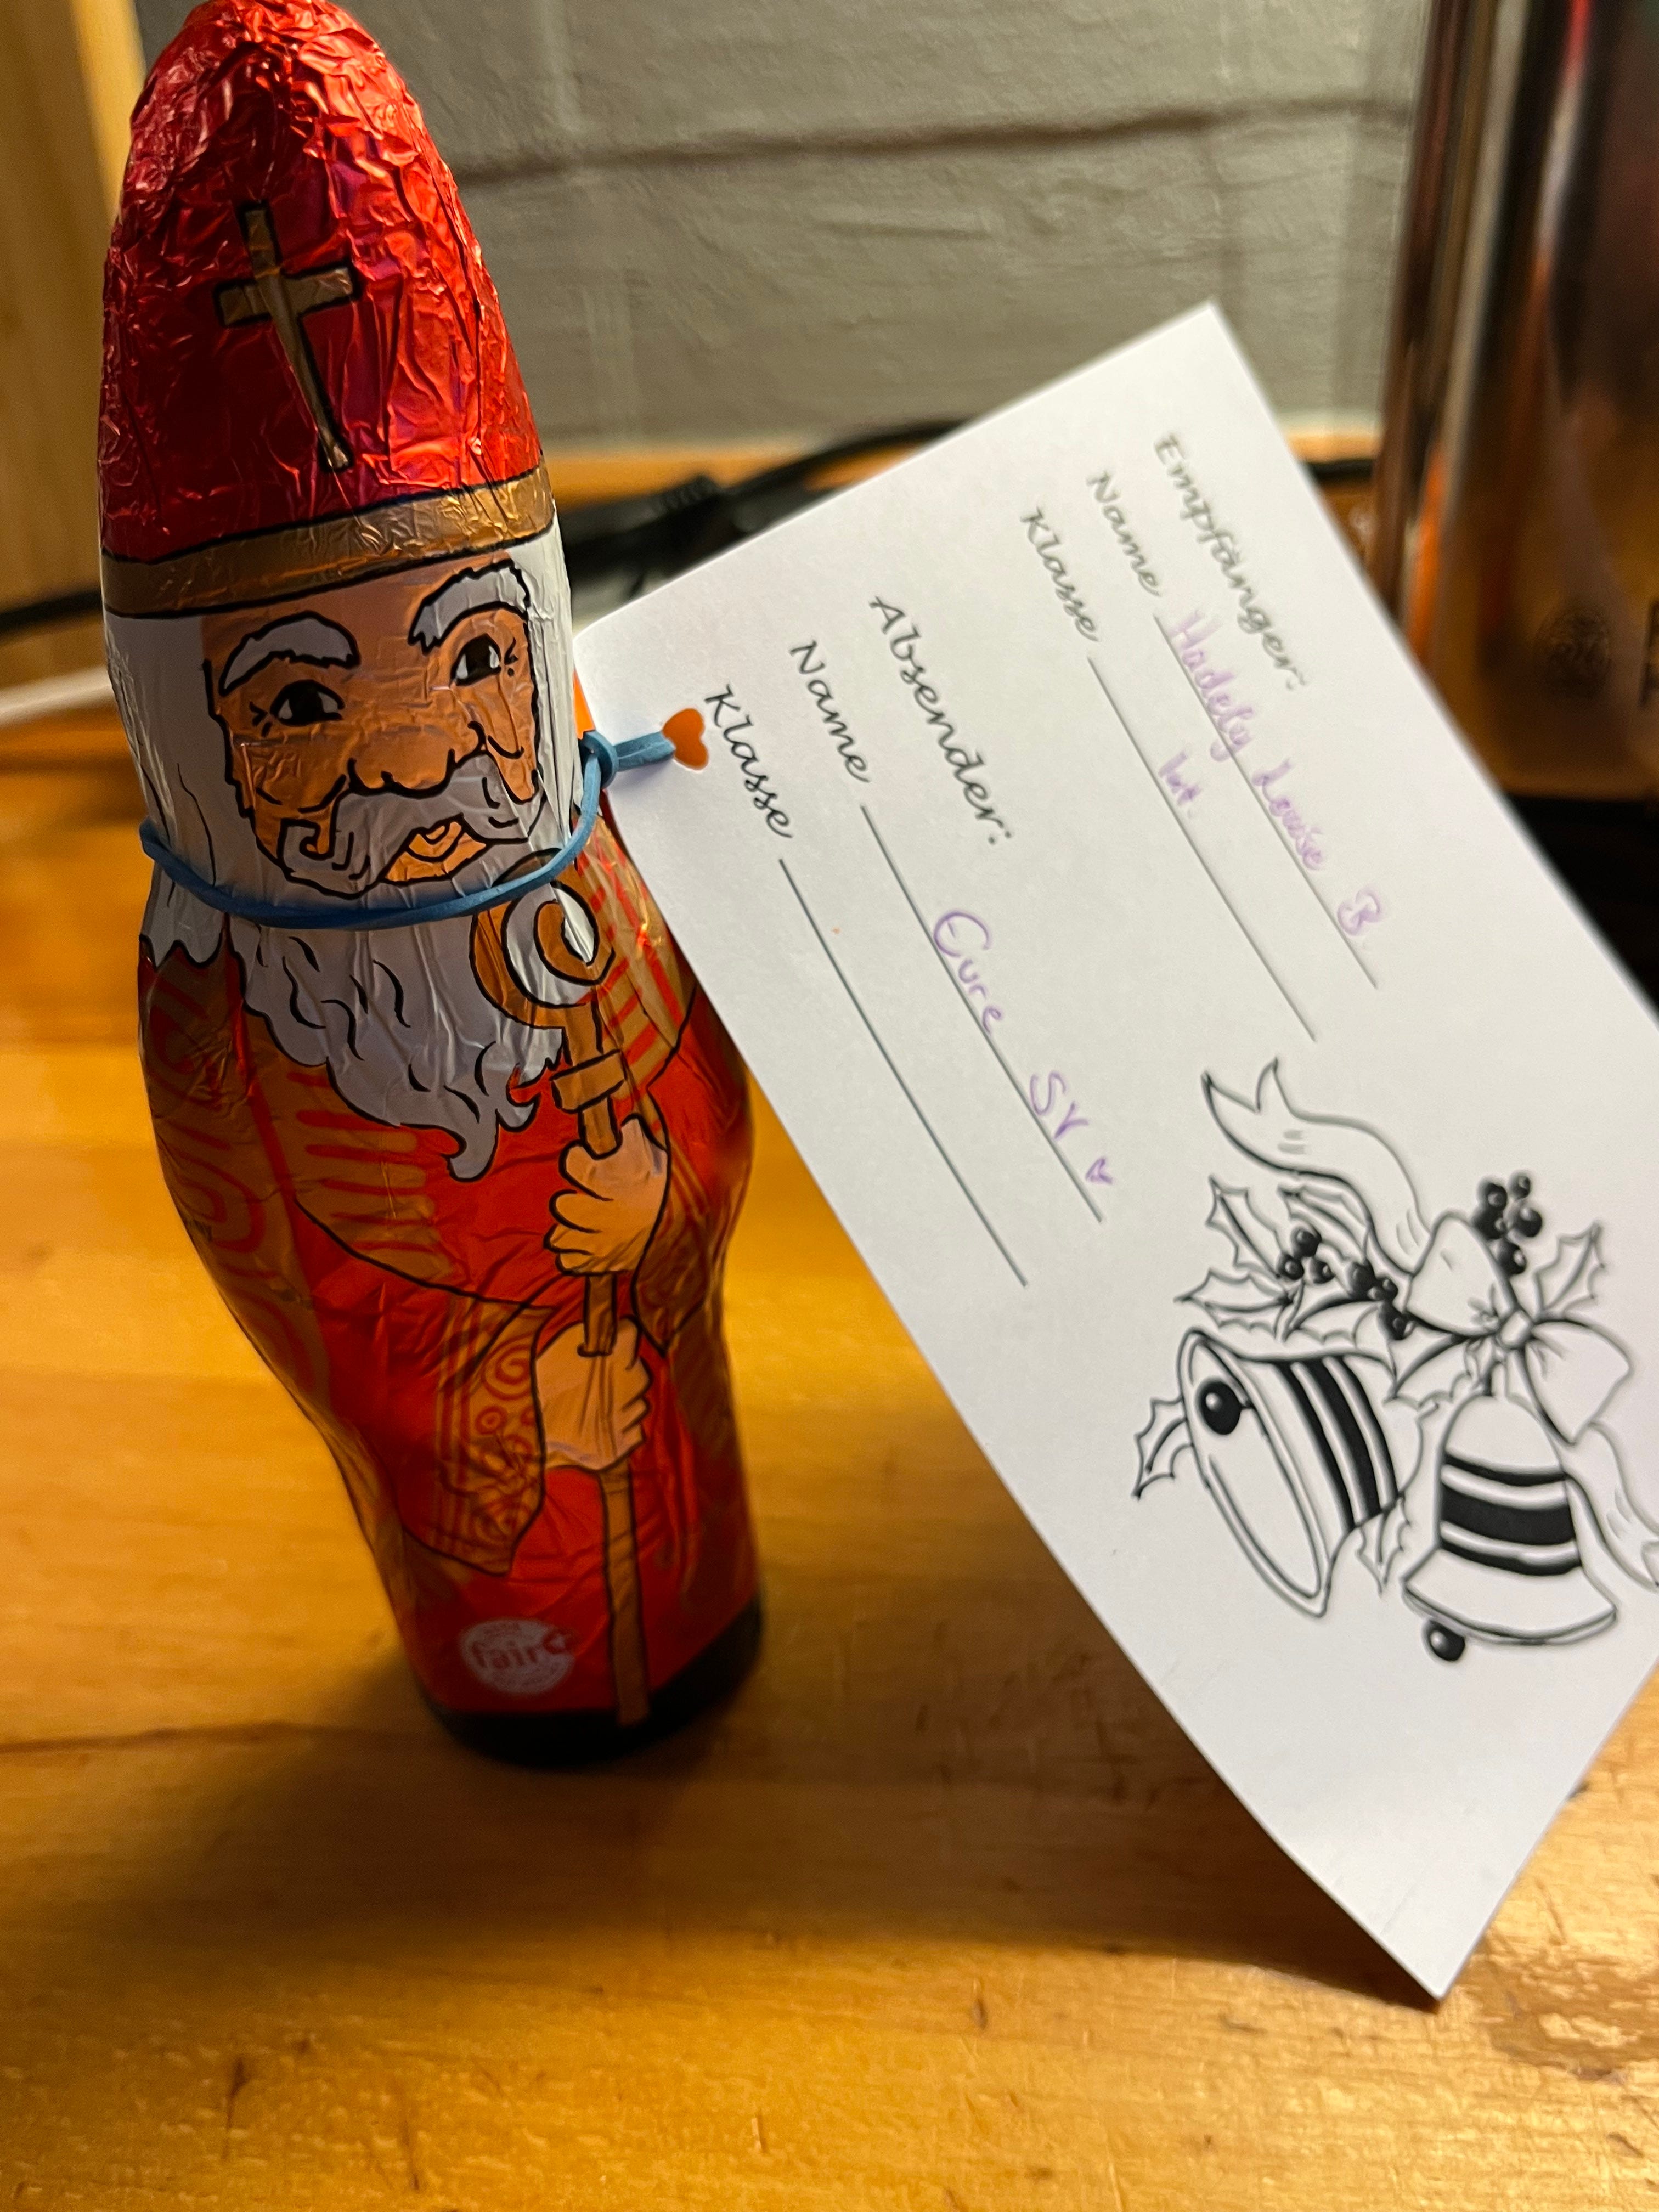 Empfänger:
Name Hadely Louise B.
Klasse Int.
Absender:
Name Eure SV
Klasse
fair